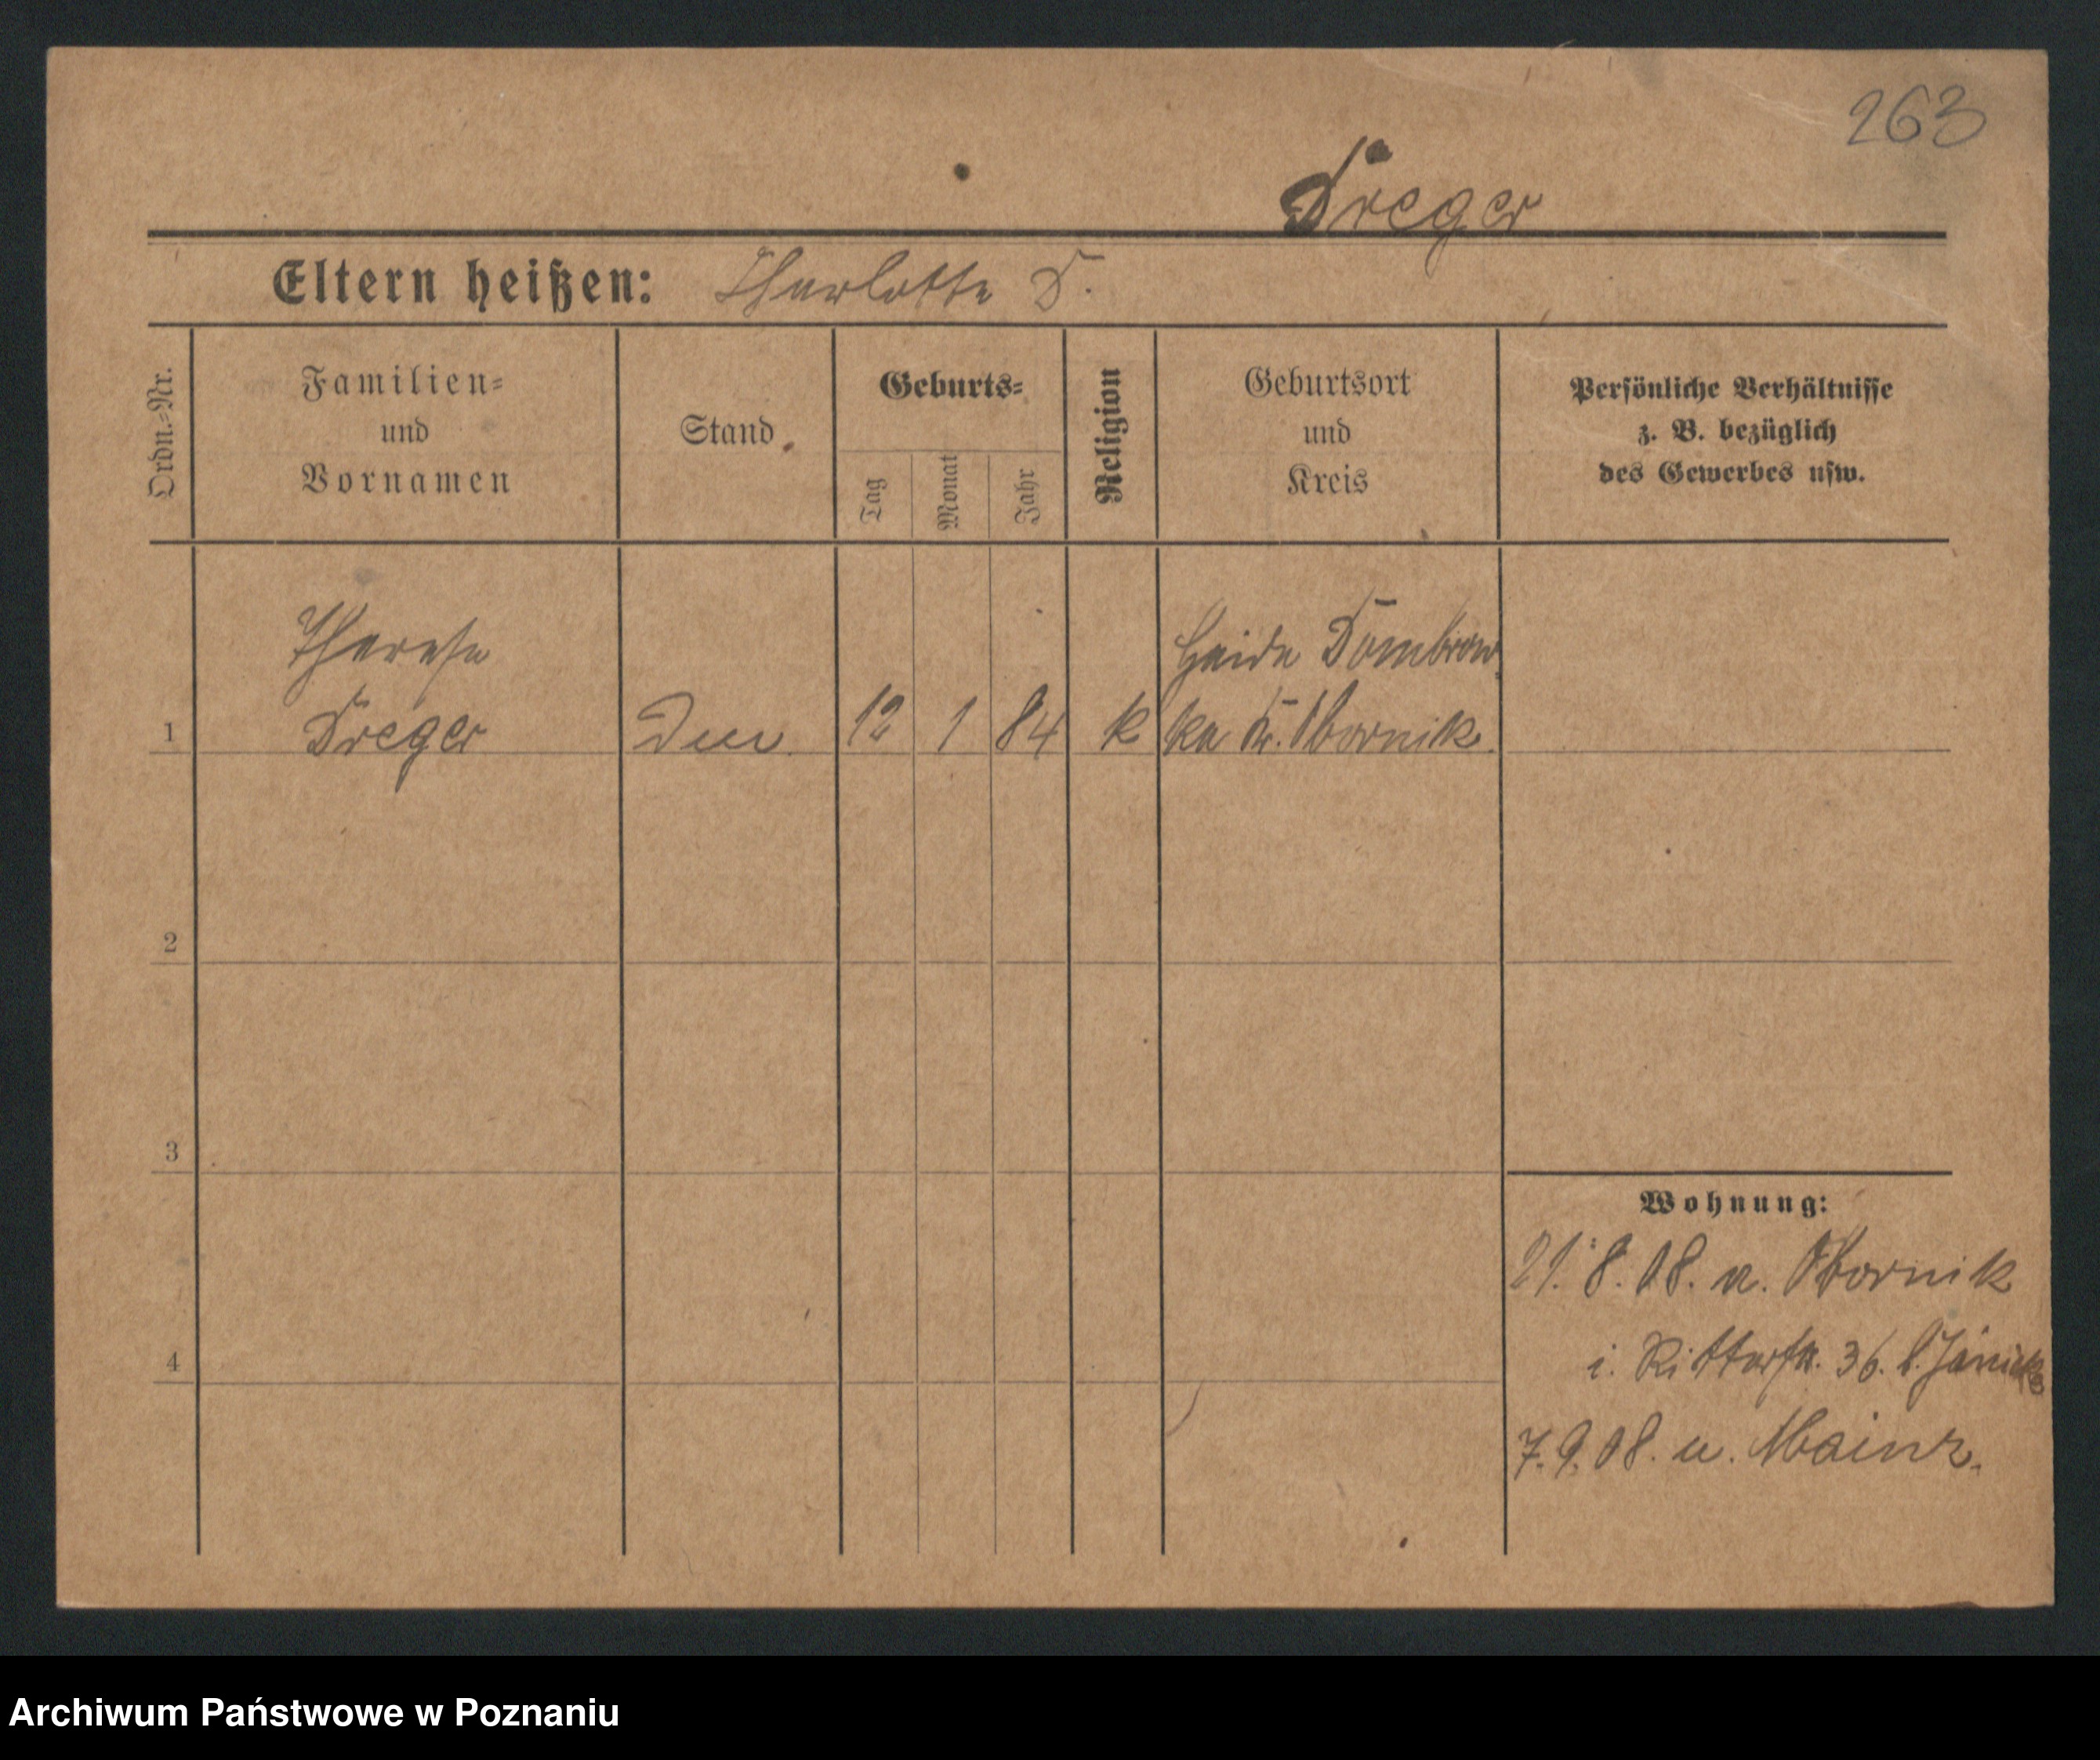 263
Dreger
Eltern heißen: Charlotte D.
Ordn.-Nr.
Familien-
und
Vornamen
Stand
Geburts-
Tag
Monat
Jahr
Religion
Geburtsort
und
Kreis
Persönliche Verhältnisse
z. B. bezüglich
des Gewerbes usw.
Therese Heide Dombrow
1 Dreger 12 1 84 k ka Kr. Obornik
2
3
Wohnung:
21. 8. 08. a. Obornik
4
i. Ritterstr. 36. b. Jänicke
7. 9. 08. u. Mainz.
Archiwum Państwowe w Poznaniu